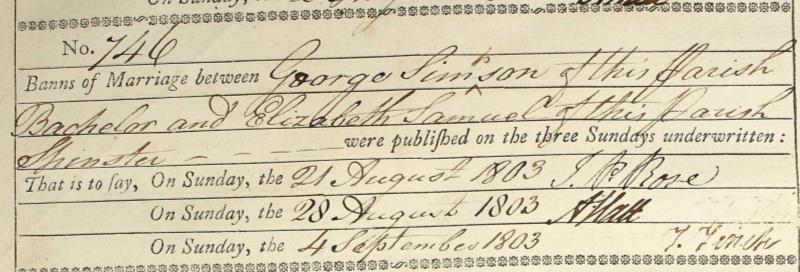 On Sunday, the
No. 746
Banns of Marriage between George Simpson of this Parish
Bachelor and Elizabeth Samuel of this Parish
Spinster — — — — were publiſhed on the three Sundays underwritten:
That is to ſay, On Sunday, the 21 August 1803 J. P. Rose
On Sunday, the 28 August 1803
On Sunday, the 4 September 1803 T. Finch